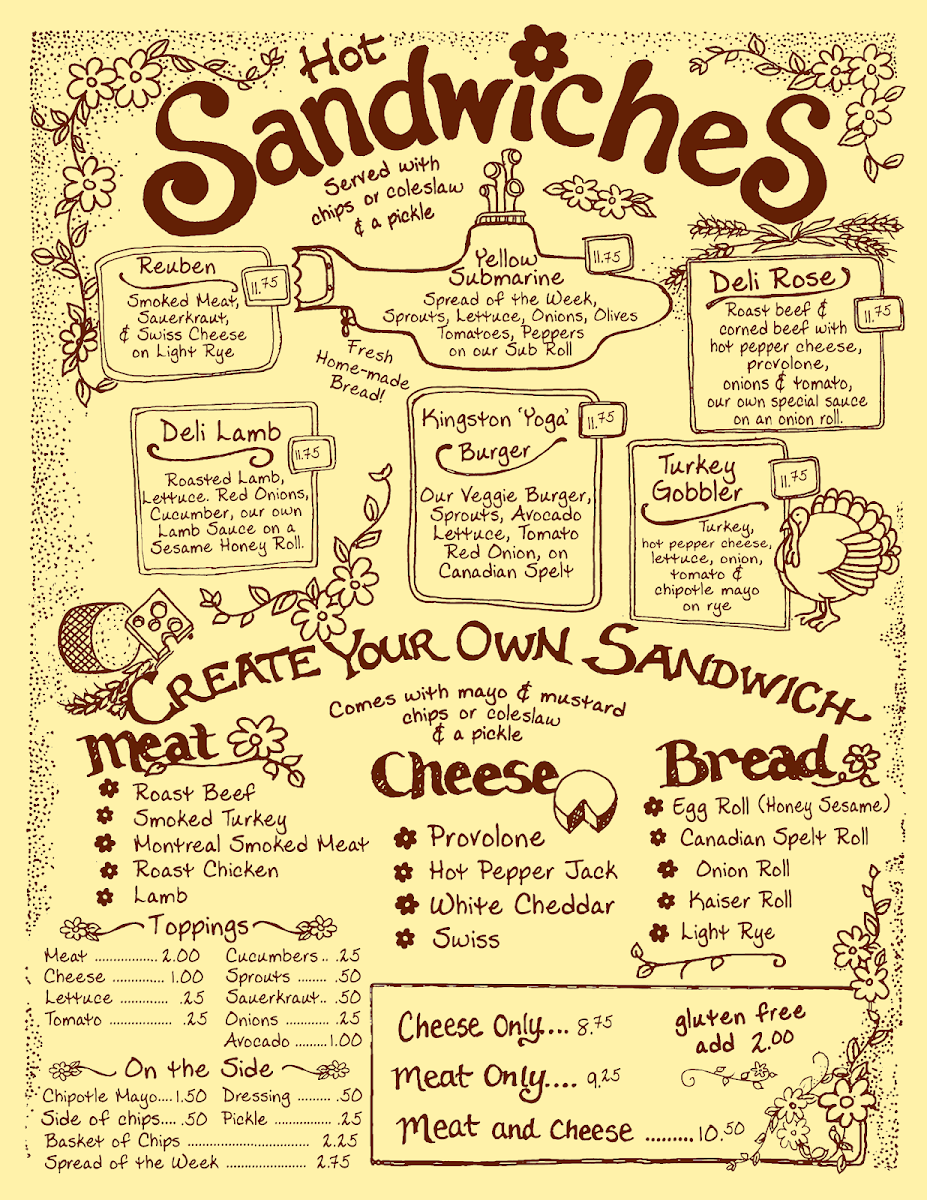 Hot
Sandwiches
Served with
chips or coleslaw
& a pickle
Reuben
11.75
Smoked Meat,
Sauerkraut,
& Swiss Cheese
on Light Rye
Yellow
Submarine
11.75
Spread of the Week,
Sprouts, Lettuce, Onions, Olives
Tomatoes, Peppers
on our Sub Roll
Fresh
Home-made
Bread!
Deli Rose
11.75
Roast beef &
corned beef with
hot pepper cheese,
provolone,
onions & tomato,
our own special sauce
on an onion roll.
Deli Lamb
11.75
Roasted Lamb,
Lettuce. Red Onions,
Cucumber, our own
Lamb Sauce on a
Sesame Honey Roll.
Kingston 'Yoga'
Burger
11.75
Our Veggie Burger,
Sprouts, Avocado
Lettuce, Tomato
Red Onion, on
Canadian Spelt
Turkey
Gobbler
11.75
Turkey,
hot pepper cheese,
lettuce, onion,
tomato &
chipotle mayo
on rye
Create Your Own Sandwich
Comes with mayo & mustard
chips or coleslaw
& a pickle
Meat
Roast Beef
Smoked Turkey
Montreal Smoked Meat
Roast Chicken
Lamb
Cheese
Provolone
Hot Pepper Jack
White Cheddar
Swiss
Bread
Egg Roll (Honey Sesame)
Canadian Spelt Roll
Onion Roll
Kaiser Roll
Light Rye
Toppings
Meat ................ 2.00
Cheese .............. 1.00
Lettuce ............. .25
Tomato ................ .25
Cucumbers.. .25
Sprouts ....... .50
Sauerkraut.. .50
Onions ........... .25
Avocado ........1.00
On the Side
Chipotle Mayo....1.50
Side of chips.... .50
Dressing ......... .50
Pickle ............... .25
Basket of Chips ................................ 2.25
Spread of the Week ................... 2.75
Cheese Only.... 8.75
Meat Only.... 9.25
Meat and Cheese .........10.50
gluten free
add 2.00